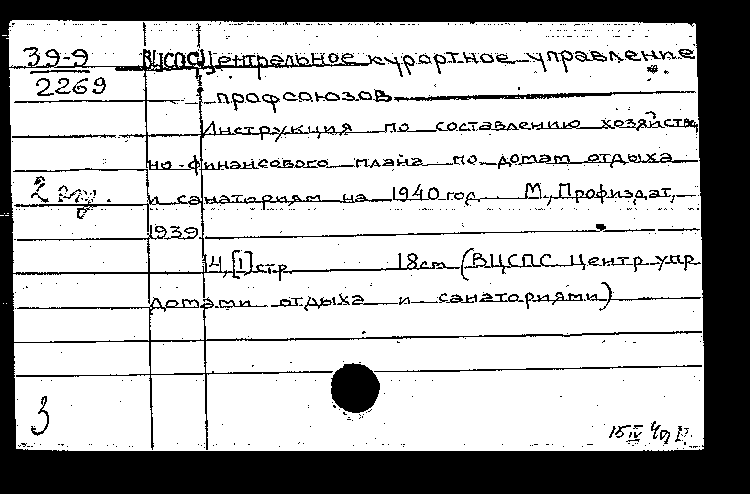 39-9
2269
ВЦСПС Центральное курортное управление
профсоюзов
Инструкция по составлению хозяйств
но-финансового плана по домам отдыха
2 экз.
и санаториям на 1940 год. М., Профиздат,
1939.
14, [1] стр 18 см (ВЦСПС Центр упр
домами отдыха и санаториями)
3
15 IV 40